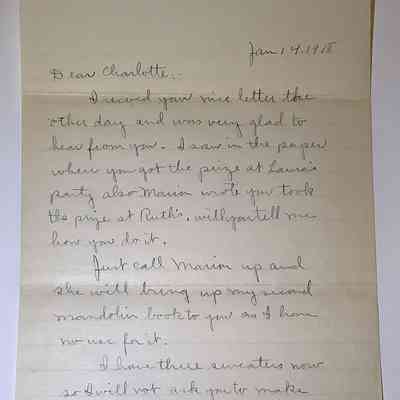 Jan 14. 1918
Dear Charlotte:-
I recived your nice letter the
other day and was very glad to
hear from you. I saw in the paper
where you got the prize at Laura's
party also Marion wrote you took
the prize at Ruth's, will you tell me
how you do it.
Just call Marion up and
she will bring up my second
mandolin book to you as I have
no use for it.
I have three sweaters now
so I will not ask you to make